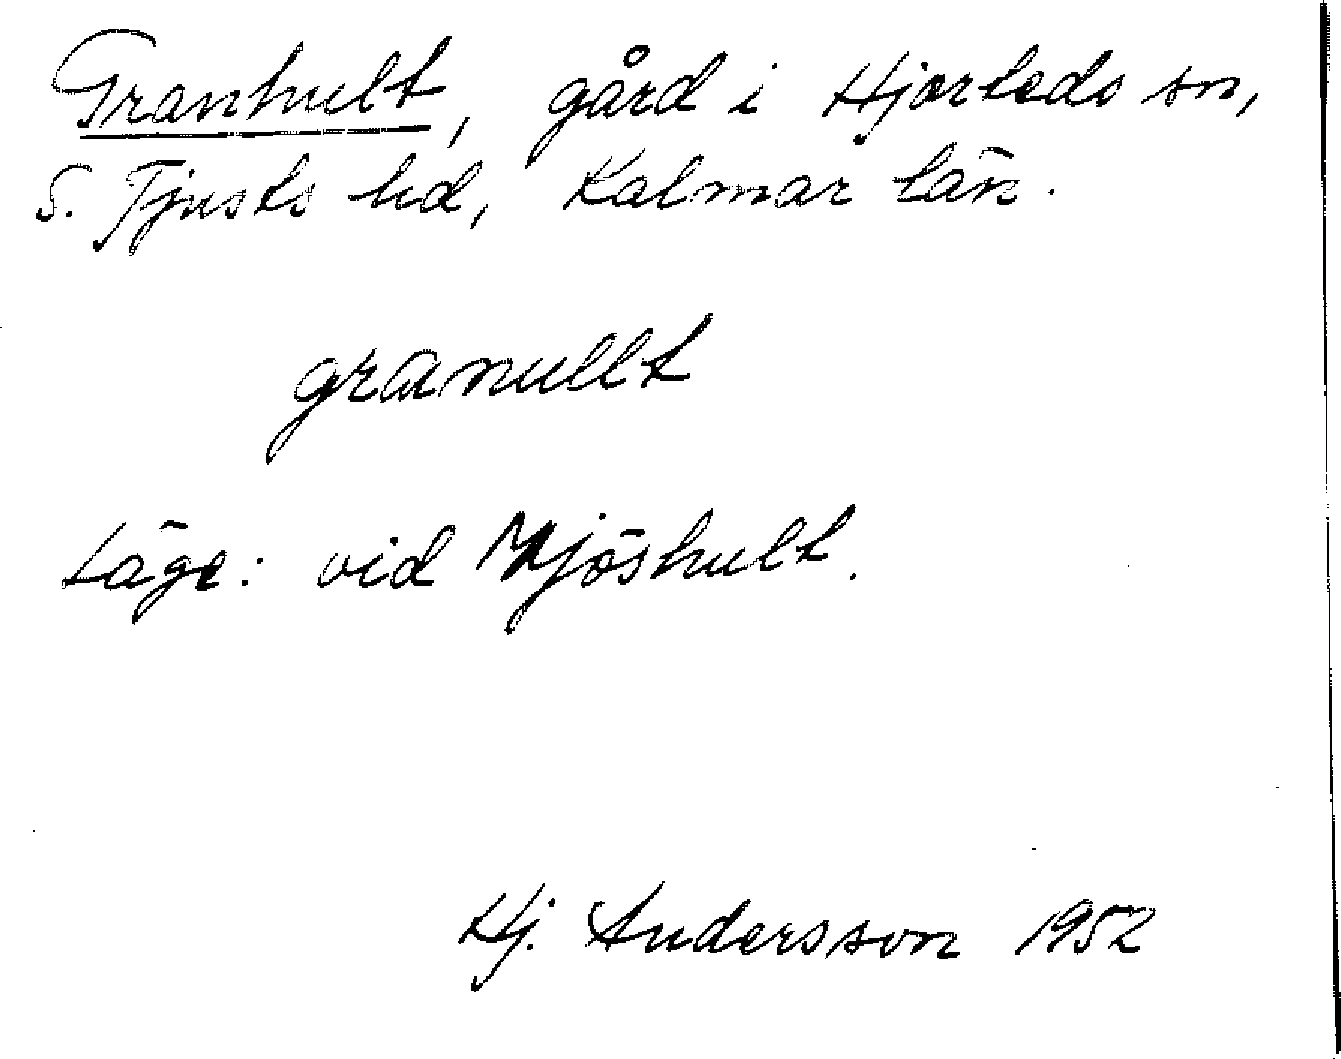 Granhult, gård i Hjorteds sn,
S. Tjusts hd, Kalmar län.
granullt
Läge: vid Mjöshult.
Hj. Andersson 1952